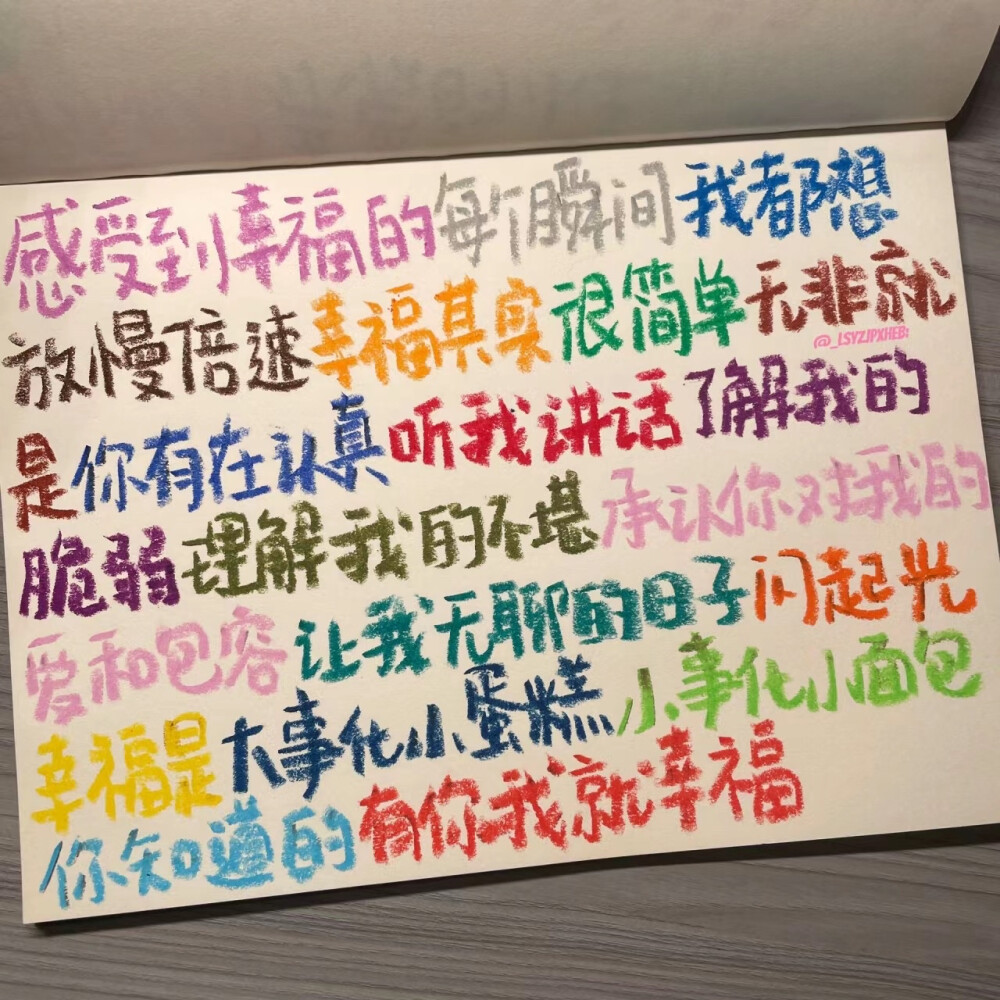 感受到幸福的每个瞬间我都想
放慢倍速幸福其实很简单无非就
@_LSYZJPXHEB!
是你有在认真听我讲话了解我的
脆弱理解我的不堪承认你对我的
爱和包容让我无聊的日子闪起光
幸福是大事化小蛋糕小事化小面包
你知道的有你我就幸福